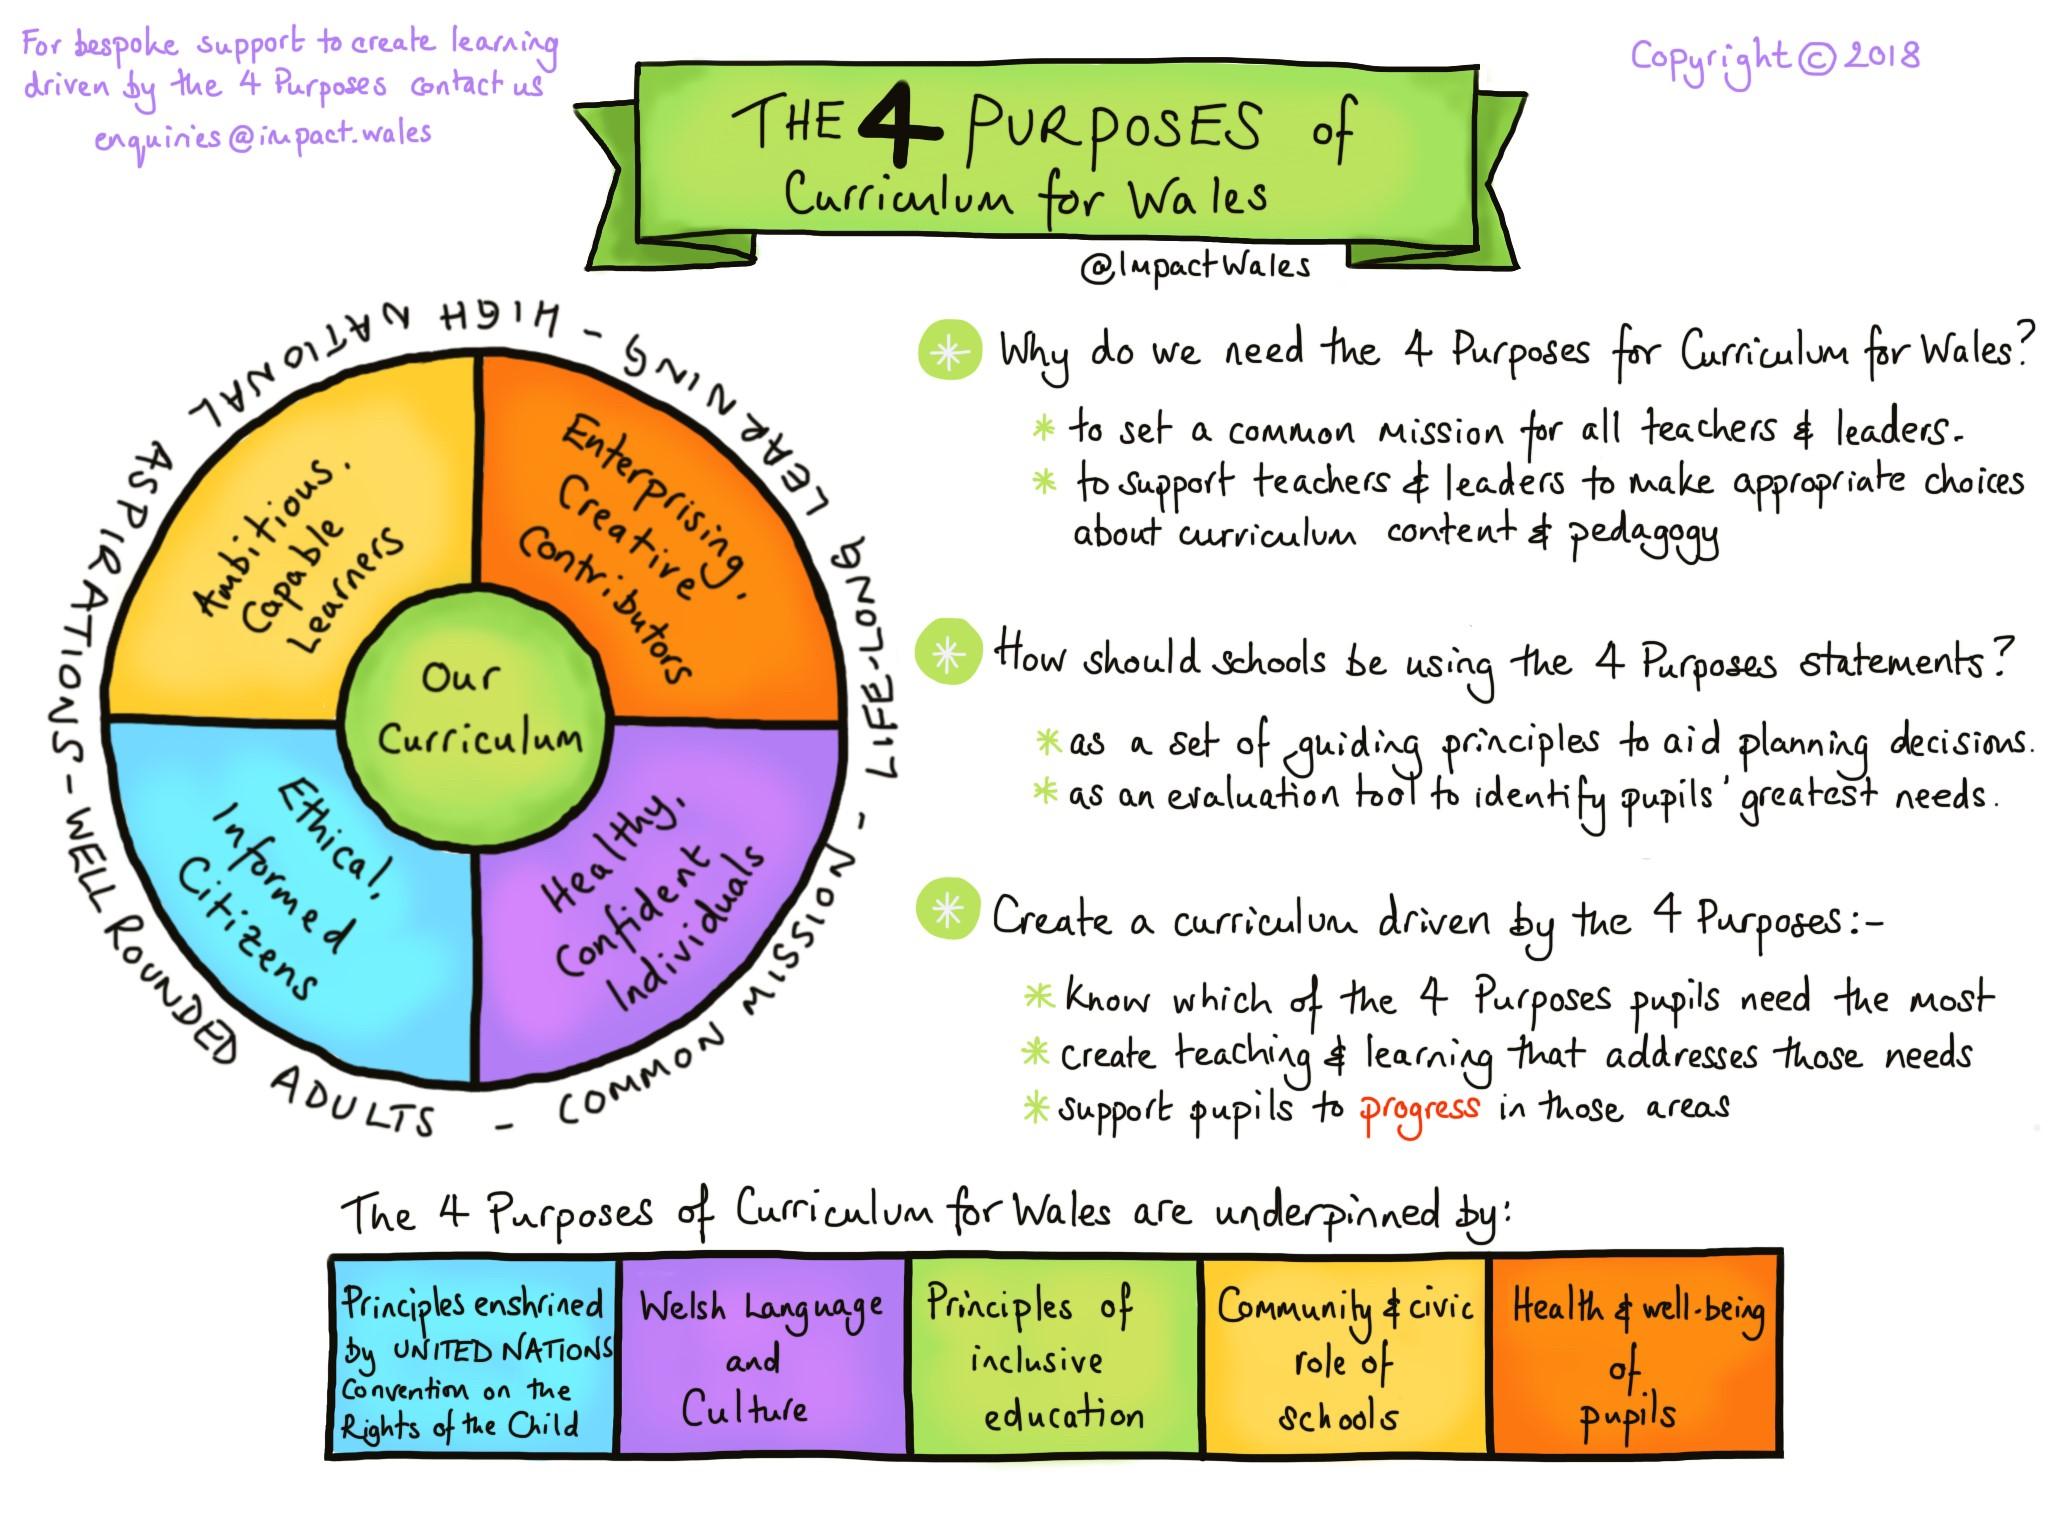 For bespoke support to create learning
driven by the 4 Purposes contact us
enquiries@impact.wales
Copyright © 2018
THE 4 PURPOSES of
Curriculum for Wales
@ImpactWales
HIGH NATIONAL ASPIRATIONS - WELL ROUNDED ADULTS - COMMON MISSION - LIFE-LONG LEARNING -
Ambitious,
Capable
Learners
Enterprising,
Creative
Contributors
Our
Curriculum
Ethical,
Informed
Citizens
Healthy,
Confident
Individuals
Why do we need the 4 Purposes for Curriculum for Wales?
* to set a common mission for all teachers & leaders.
* to support teachers & leaders to make appropriate choices
about curriculum content & pedagogy
How should schools be using the 4 Purposes statements?
* as a set of guiding principles to aid planning decisions.
* as an evaluation tool to identify pupils' greatest needs.
Create a curriculum driven by the 4 Purposes:-
* Know which of the 4 Purposes pupils need the most
* create teaching & learning that addresses those needs
* support pupils to progress in those areas
The 4 Purposes of Curriculum for Wales are underpinned by:
Principles enshrined
by UNITED NATIONS
Convention on the
Rights of the Child
Welsh Language
and
Culture
Principles of
inclusive
education
Community & civic
role of
schools
Health & well-being
of
pupils